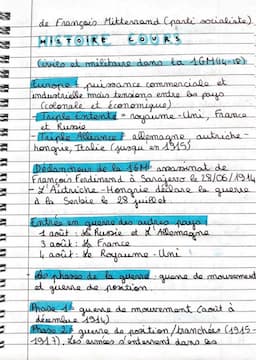 de François Mitterrand (parti socialiste)
HISTOIRE COURS
Civils et militaire dans la 1GM (14-18)
Europe : puissance commerciale et
industrielle mais tensions entre les pays
(coloniale et économique)
Triple Entente = royaume-Uni, France
et Russie
Triple Alliance : allemagne, autriche-
hongrie, Italie (jusqu'en 1915)
Déclencheur de la 1GM : assassinat de
François Ferdinand à Sarajevo le 28/06/1914
→ L'Autriche-Hongrie déclare la guerre
à la Serbie le 28 juillet
Entrées en guerre des autres pays
1 août : la Russie et l'Allemagne
3 août : la France
4 août : le Royaume-Uni
les phases de la guerre : guerre de mouvement
et guerre de position
Phase 1 : guerre de mouvement (août à
décembre 1914)
Phase 2 : guerre de position/tranchées (1915-
1917). Les armées s'enterrent dans les